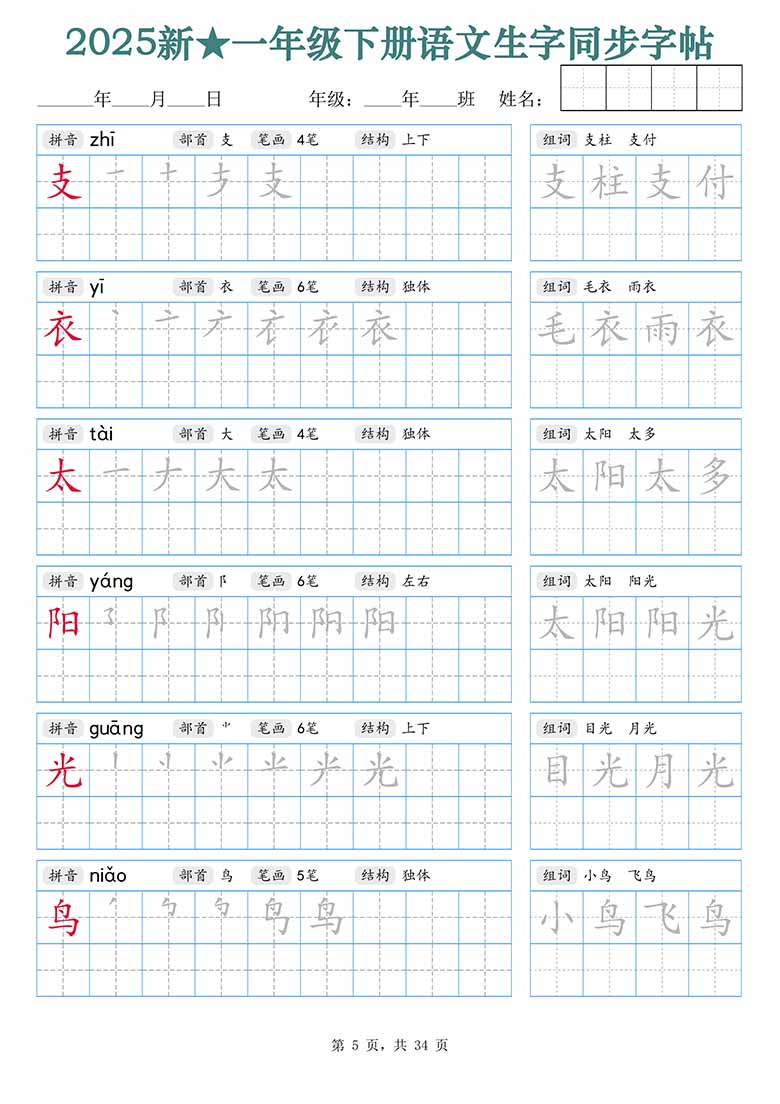 2025新★一年级下册语文生字同步字帖
______年____月____日 年级：____年____班 姓名：
拼音 zhī 部首 支 笔画 4笔 结构 上下 组词 支柱 支付
支 一 十 支 支柱支付
拼音 yī 部首 衣 笔画 6笔 结构 独体 组词 毛衣 雨衣
衣 丶 亠 衣 毛衣雨衣
拼音 tài 部首 大 笔画 4笔 结构 独体 组词 太阳 太多
太 一 ナ 大 太 太阳太多
拼音 yáng 部首 阝 笔画 6笔 结构 左右 组词 太阳 阳光
阳 阝 阳 太阳阳光
拼音 guāng 部首 ⺌ 笔画 6笔 结构 上下 组词 目光 月光
光 丨 ⺌ 光 目光月光
拼音 niǎo 部首 鸟 笔画 5笔 结构 独体 组词 小鸟 飞鸟
鸟 鸟 小鸟飞鸟
第 5 页，共 34 页